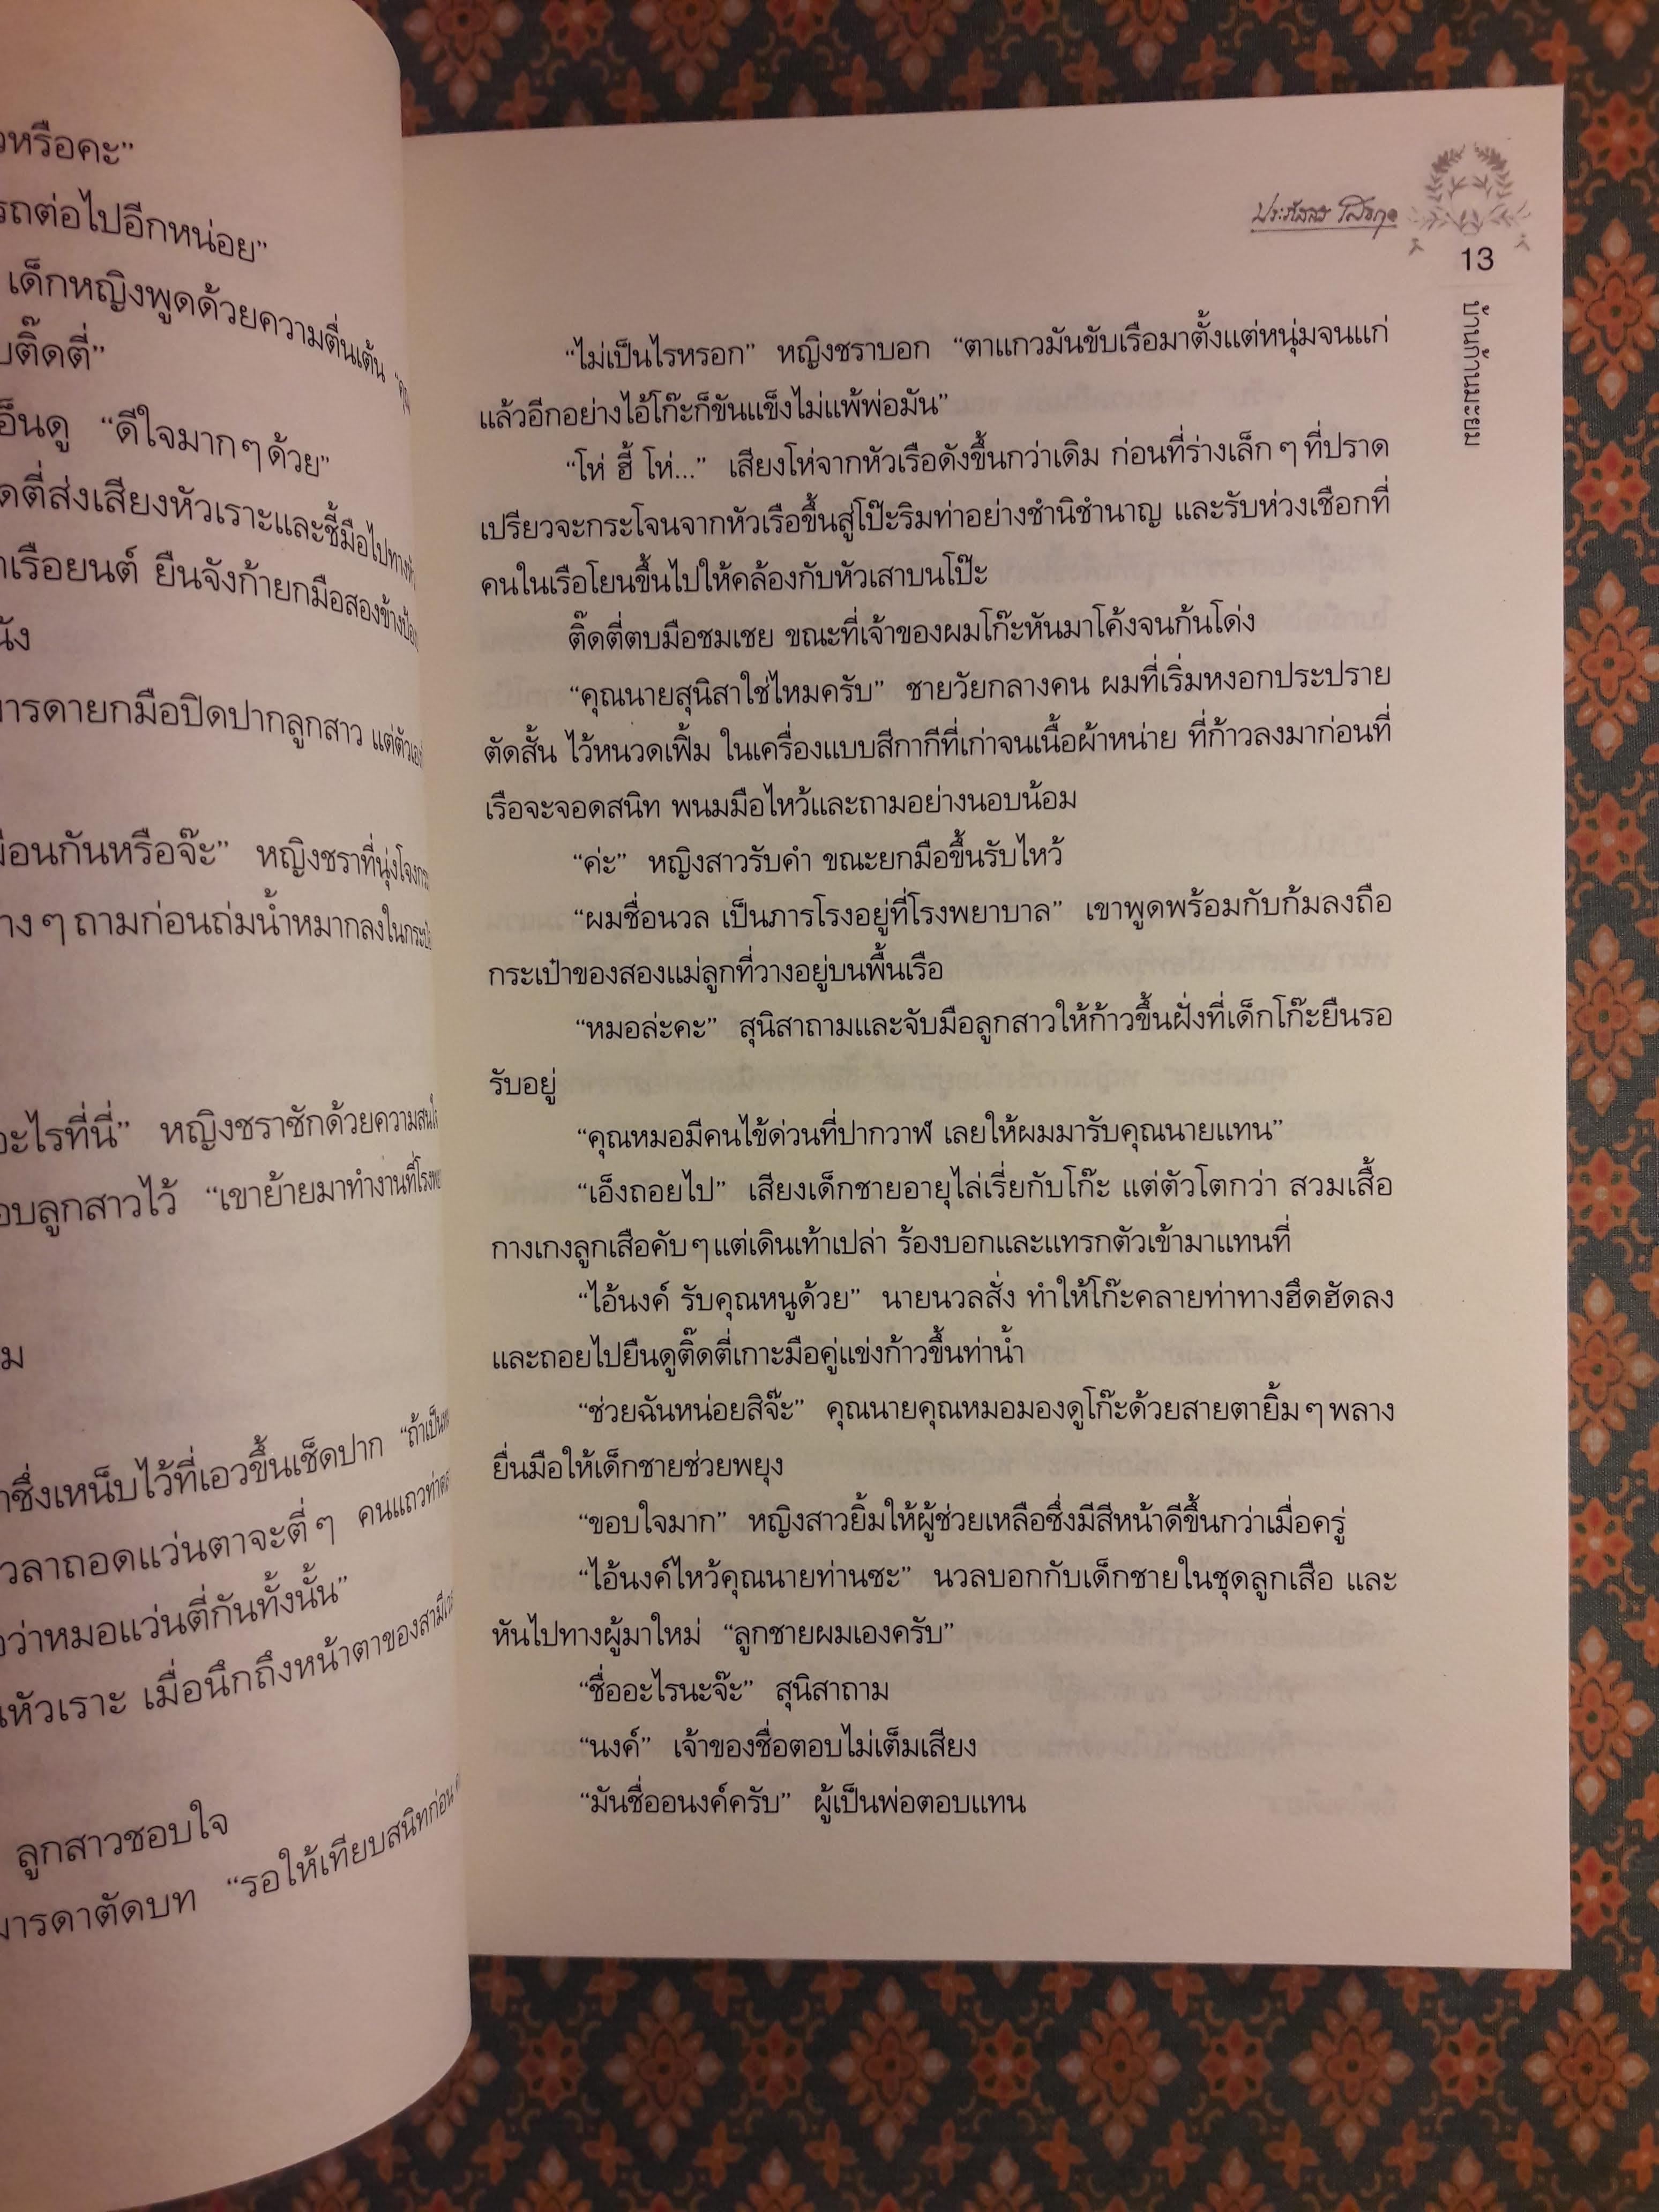 วหรือคะ”
รถต่อไปอีกหน่อย”
เด็กหญิงพูดด้วยความตื่นเต้น
บติ๊ดตี่”
อ็นดู “ดีใจมากๆด้วย”
ดตี่ส่งเสียงหัวเราะและชี้มือไปทาง
าเรือยนต์ ยืนจังก้ายกมือสองข้าง
นัง
ารดายกมือปิดปากลูกสาว แต่ตัวเอง
มือนกันหรือจ๊ะ” หญิงชราที่นุ่งโจง
าง ๆ ถามก่อนถ่มน้ำหมากลงใน
อะไรที่นี่” หญิงชราซักด้วยความ
อบลูกสาวไว้ “เขาย้ายมาทำงานที่
ม
าซึ่งเหน็บไว้ที่เอวขึ้นเช็ดปาก “ถ้าเป็น
วลาถอดแว่นตาจะตี่ๆ คนแถวท่า
ว่าหมอแว่นตี่กันทั้งนั้น”
หัวเราะ เมื่อนึกถึงหน้าตาของสามี
ลูกสาวชอบใจ
มารดาตัดบท “รอให้เทียบสนิทก่อน
ประภัสสร เสวิกุล
13
บ้านก้านมะยม
“ไม่เป็นไรหรอก” หญิงชราบอก “ตาแกวมันขับเรือมาตั้งแต่หนุ่มจนแก่
แล้วอีกอย่างไอ้โก๊ะก็ขันแข็งไม่แพ้พ่อมัน”
“โห่ ฮี้ โห่...” เสียงโห่จากหัวเรือดังขึ้นกว่าเดิม ก่อนที่ร่างเล็ก ๆ ที่ปราด
เปรียวจะกระโจนจากหัวเรือขึ้นสู่โป๊ะริมท่าอย่างชำนิชำนาญ และรับห่วงเชือกที่
คนในเรือโยนขึ้นไปให้คล้องกับหัวเสาบนโป๊ะ
ติ๊ดตี่ตบมือชมเชย ขณะที่เจ้าของผมโก๊ะหันมาโค้งจนก้นโด่ง
“คุณนายสุนิสาใช่ไหมครับ” ชายวัยกลางคน ผมที่เริ่มหงอกประปราย
ตัดสั้น ไว้หนวดเฟิ้ม ในเครื่องแบบสีกากีที่เก่าจนเนื้อผ้าหน่าย ที่ก้าวลงมาก่อนที่
เรือจะจอดสนิท พนมมือไหว้และถามอย่างนอบน้อม
“ค่ะ” หญิงสาวรับคำ ขณะยกมือขึ้นรับไหว้
“ผมชื่อนวล เป็นภารโรงอยู่ที่โรงพยาบาล” เขาพูดพร้อมกับก้มลงถือ
กระเป๋าของสองแม่ลูกที่วางอยู่บนพื้นเรือ
“หมอล่ะคะ” สุนิสาถามและจับมือลูกสาวให้ก้าวขึ้นฝั่งที่เด็กโก๊ะยืนรอ
รับอยู่
“คุณหมอมีคนไข้ด่วนที่ปากวาฬ เลยให้ผมมารับคุณนายแทน”
“เอ็งถอยไป” เสียงเด็กชายอายุไล่เรี่ยกับโก๊ะ แต่ตัวโตกว่า สวมเสื้อ
กางเกงลูกเสือคับๆแต่เดินเท้าเปล่า ร้องบอกและแทรกตัวเข้ามาแทนที่
“ไอ้นงค์ รับคุณหนูด้วย” นายนวลสั่ง ทำให้โก๊ะคลายท่าทางฮึดฮัดลง
และถอยไปยืนดูติ๊ดตี่เกาะมือคู่แข่งก้าวขึ้นท่าน้ำ
“ช่วยฉันหน่อยสิจ๊ะ” คุณนายคุณหมอมองดูโก๊ะด้วยสายตายิ้มๆ พลาง
ยื่นมือให้เด็กชายช่วยพยุง
“ขอบใจมาก” หญิงสาวยิ้มให้ผู้ช่วยเหลือซึ่งมีสีหน้าดีขึ้นกว่าเมื่อครู่
“ไอ้นงค์ไหว้คุณนายท่านซะ” นวลบอกกับเด็กชายในชุดลูกเสือ และ
หันไปทางผู้มาใหม่ “ลูกชายผมเองครับ”
“ชื่ออะไรนะจ๊ะ” สุนิสาถาม
“นงค์” เจ้าของชื่อตอบไม่เต็มเสียง
“มันชื่ออนงค์ครับ” ผู้เป็นพ่อตอบแทน